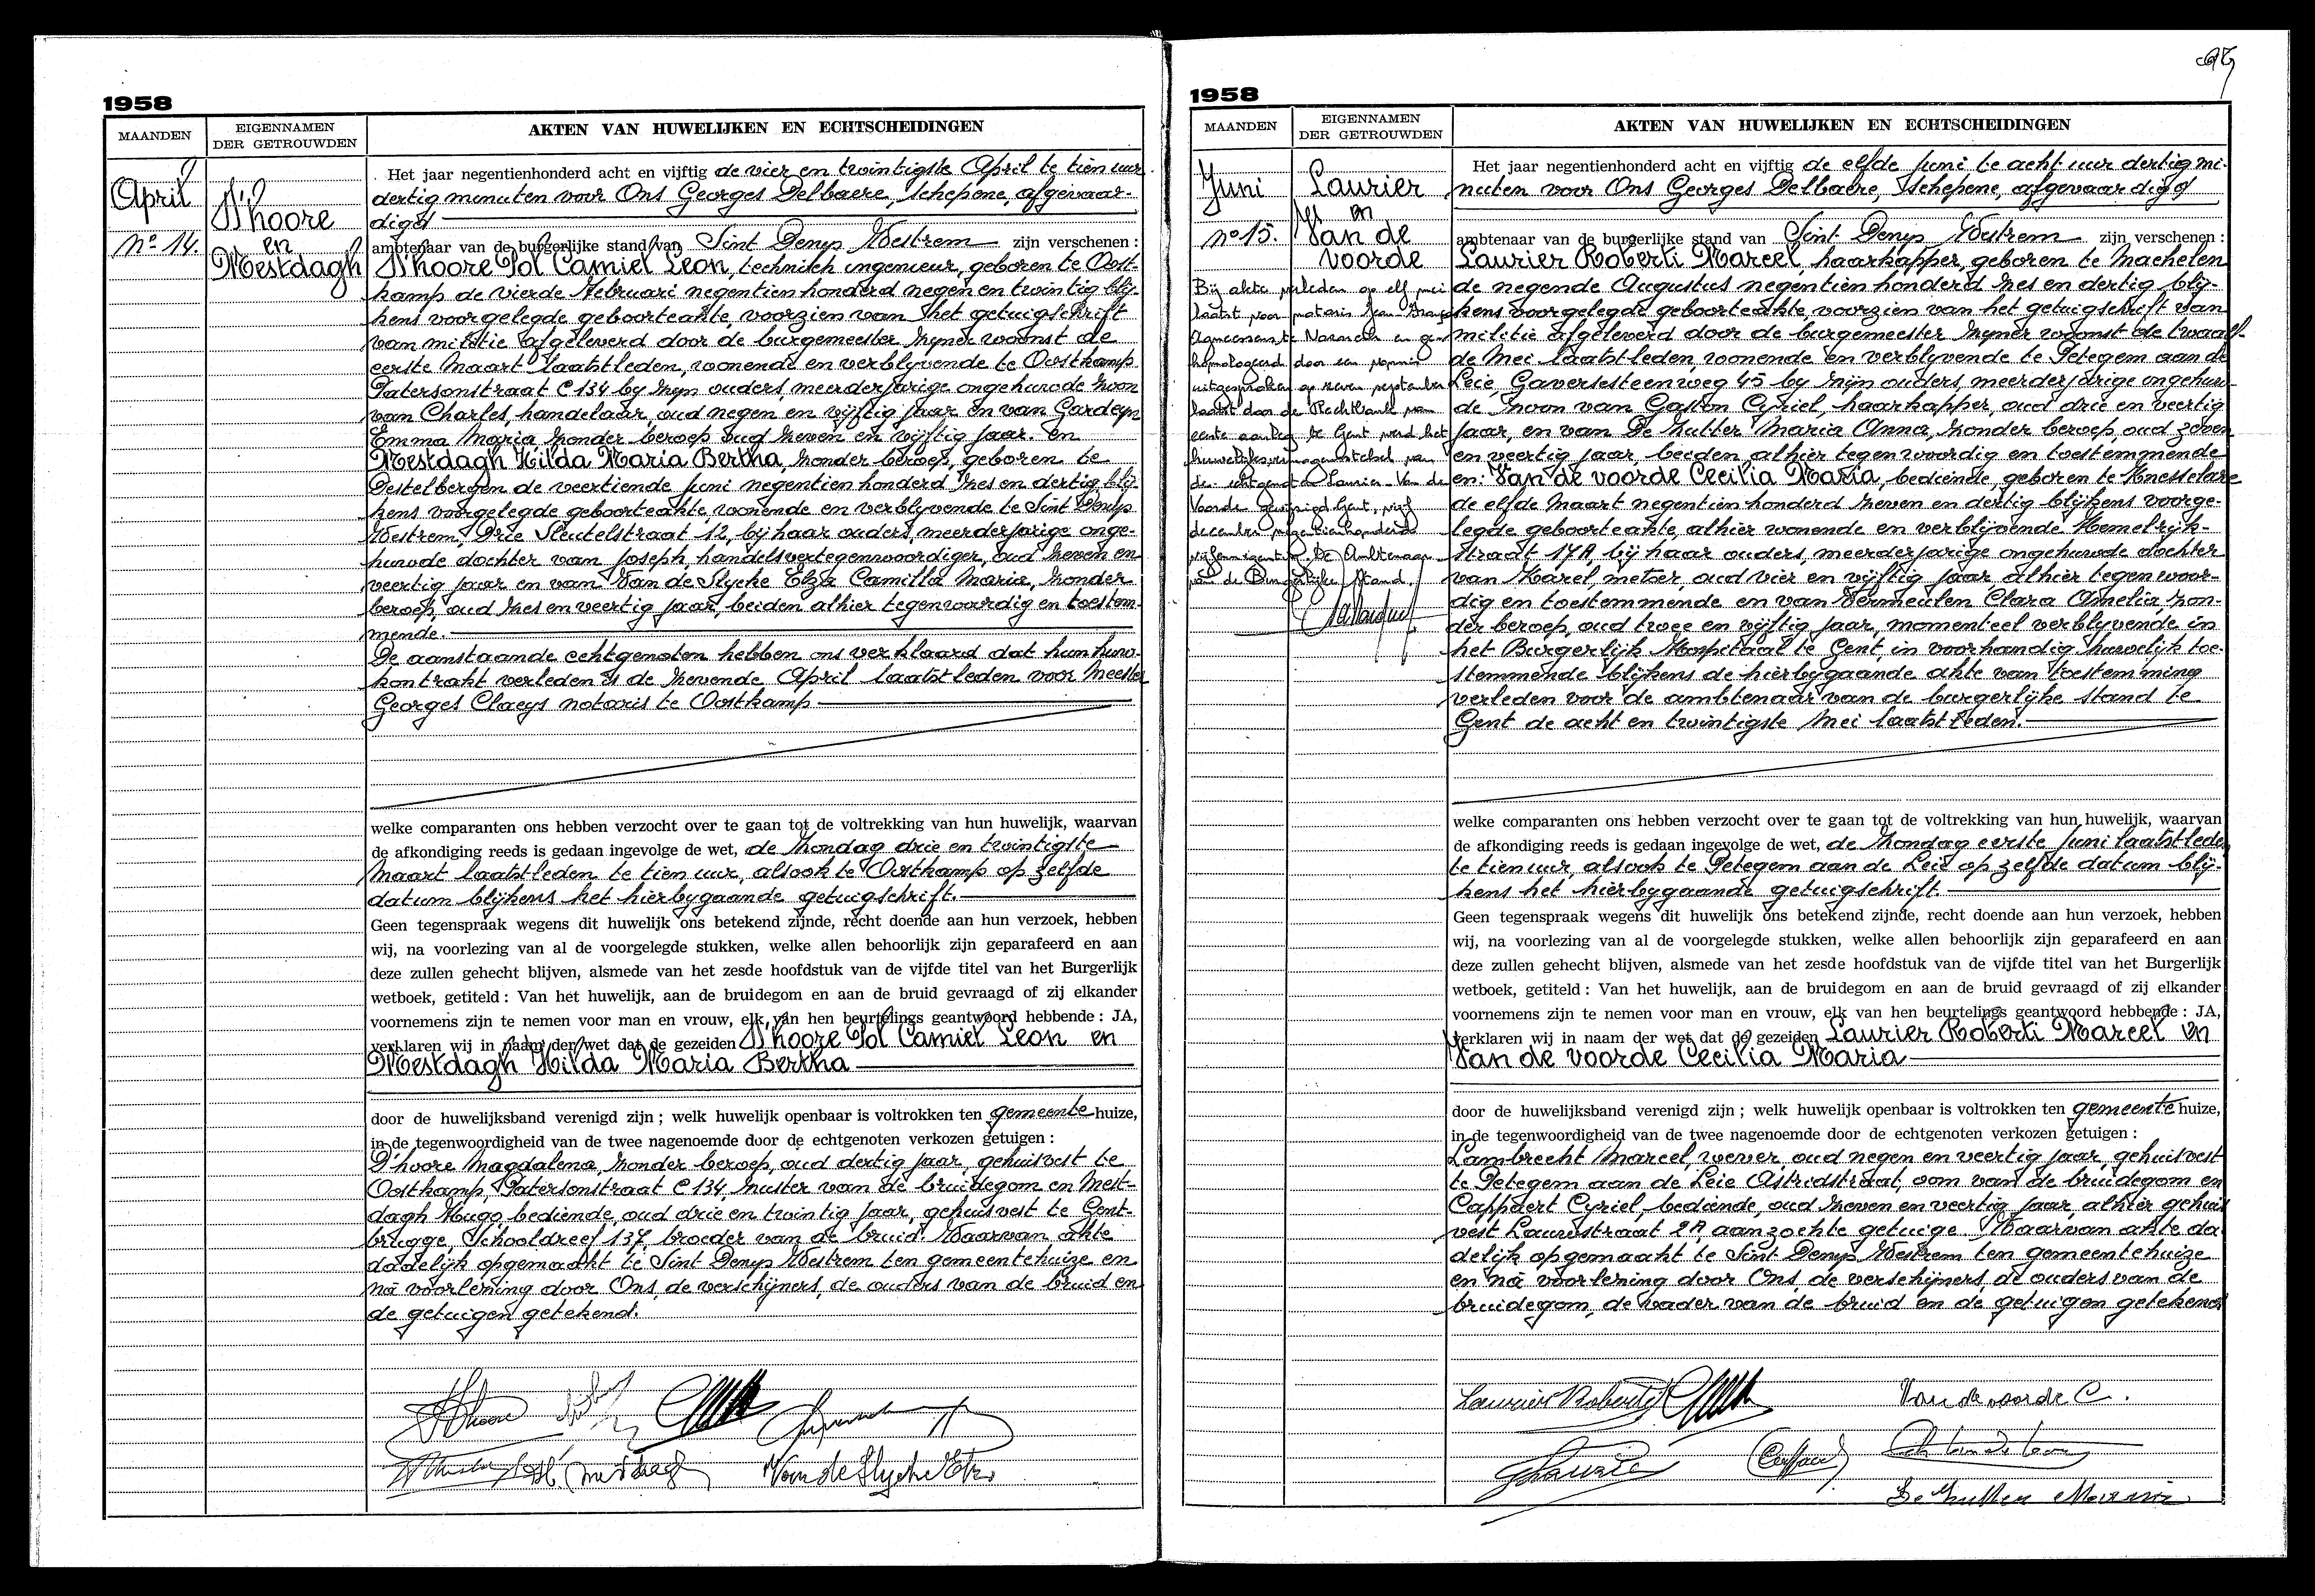 1958
MAANDEN
EIGENNAMEN
DER GETROUWDEN
AKTEN VAN HUWELIJKEN EN ECHTSCHEIDINGEN
April
D'hoore
Nº 14.
en
Mestdagh
Het jaar negentienhonderd acht en vijftig de vier en twintigste April te tien uur
dertig minuten voor Ons Georges Delbaere, schepene, afgevaar-
digd
ambtenaar van de burgerlijke stand van Sint Denys Westrem zijn verschenen :
D'hoore Pol Camiel Leon, technisch ingenieur, geboren te Oost-
kamp de vierde Februari negentien honderd negen en twintig blij-
kens voorgelegde geboorteakte, voorzien van het getuigschrift
van militie afgeleverd door de burgemeester zijner woonst de
eerste Maart laatstleden, wonende en verblyvende te Oostkamp
Patersonstraat C 134 by zijn ouders, meerderjarige ongehuwde zoon
van Charles, handelaar, oud negen en vijftig jaar en van Gardeyn
Emma Maria zonder beroep oud zeven en vijftig jaar. en
Mestdagh Hilda Maria Bertha, zonder beroep, geboren te
Destelbergen de veertiende juni negentien honderd zes en dertig blij-
kens voorgelegde geboorteakte, wonende en verblyvende te Sint Denys
Westrem, Drie Sleutelstraat 12, bij haar ouders, meerderjarige onge-
huwde dochter van Joseph, handelsvertegenwoordiger, oud zeven en
veertig jaar en van Van de Slycke Elza Camilla Maria, zonder
beroep, oud zes en veertig jaar, beiden alhier tegenwoordig en toestem-
mende.
De aanstaande echtgenoten hebben ons verklaard dat hun huw-
kontrakt verleden is de zevende April laatstleden voor Meester
Georges Claeys notaris te Oostkamp
welke comparanten ons hebben verzocht over te gaan tot de voltrekking van hun huwelijk, waarvan
de afkondiging reeds is gedaan ingevolge de wet, de zondag drie en twintigste
Maart laatstleden te tien uur, alsook te Oostkamp op zelfde
datum blijkens het hierbygaande getuigschrift.
Geen tegenspraak wegens dit huwelijk ons betekend zijnde, recht doende aan hun verzoek, hebben
wij, na voorlezing van al de voorgelegde stukken, welke allen behoorlijk zijn geparafeerd en aan
deze zullen gehecht blijven, alsmede van het zesde hoofdstuk van de vijfde titel van het Burgerlijk
wetboek, getiteld : Van het huwelijk, aan de bruidegom en aan de bruid gevraagd of zij elkander
voornemens zijn te nemen voor man en vrouw, elk van hen beurtelings geantwoord hebbende : JA,
verklaren wij in naam der wet dat de gezeiden D'hoore Pol Camiel Leon en
Mestdagh Hilda Maria Bertha
door de huwelijksband verenigd zijn ; welk huwelijk openbaar is voltrokken ten gemeente huize,
in de tegenwoordigheid van de twee nagenoemde door de echtgenoten verkozen getuigen :
D'hoore Magdalena, zonder beroep, oud dertig jaar, gehuisvest te
Oostkamp, Patersonstraat C 134, zuster van de bruidegom en Mest-
dagh Hugo, bediende, oud drie en twintig jaar, gehuisvest te Gent-
brugge, Schooldreef 137, broeder van de bruid. Waarvan akte
dadelijk opgemaakt te Sint Denys Westrem ten gemeentehuize en
na voorlezing door Ons, de verschijners, de ouders van de bruid en
de getuigen getekend.
D'hoore
Van de Slycke Elza
1958
MAANDEN
EIGENNAMEN
DER GETROUWDEN
AKTEN VAN HUWELIJKEN EN ECHTSCHEIDINGEN
Juni
Laurier
en
Nº 15.
Van de
voorde
Bij akte verleden op elf mei
laatst voor notaris Jean
te Nazareth en
gehomologeerd door een vonnis
uitgesproken op zeven september
laatst door de Rechtbank van
eerste aanleg te Gent werd het
huwelijksvermogensstelsel van
de echtgenoten Laurier-Van de
Voorde gewijzigd. Gent, vijf
december negentienhonderd
De Ambtenaar
van de Burgerlijke Stand.
Het jaar negentienhonderd acht en vijftig de elfde juni te acht uur dertig mi-
nuten voor Ons Georges Delbaere, schepene, afgevaardigd
ambtenaar van de burgerlijke stand van Sint Denys Westrem zijn verschenen :
Laurier Roberti Marcel, haarkapper, geboren te Machelen
de negende Augustus negentien honderd zes en dertig blij-
kens voorgelegde geboorteakte, voorzien van het getuigschrift van
militie afgeleverd door de burgemeester zijner woonst de twaalf-
de Mei laatstleden, wonende en verblyvende te Petegem aan de
Leie, Gaversesteenweg 45 by zijn ouders, meerderjarige ongehuw-
de zoon van Gaston Cyriel, haarkapper, oud drie en veertig
jaar, en van De Zutter Maria Anna, zonder beroep, oud zeven
en veertig jaar, beiden alhier tegenwoordig en toestemmende
en: Van de voorde Cecilia Maria, bediende, geboren te Knesselare
de elfde Maart negentien honderd zeven en dertig blijkens voorge-
legde geboorteakte, alhier wonende en verblijvende Hemelrijk-
straat 17A, bij haar ouders, meerderjarige ongehuwde dochter
van Karel, metser, oud vier en vijftig jaar alhier tegenwoor-
dig en toestemmende en van Vermeulen Clara Amelia, zon-
der beroep, oud twee en vijftig jaar, momenteel verblyvende in
het Burgerlijk Hospitaal te Gent, in voorhandig huwelijk toe-
stemmende blijkens de hierbygaande akte van toestemming
verleden voor de ambtenaar van de burgerlijke stand te
Gent de acht en twintigste Mei laatstleden.
welke comparanten ons hebben verzocht over te gaan tot de voltrekking van hun huwelijk, waarvan
de afkondiging reeds is gedaan ingevolge de wet, de zondag eerste juni laatstleden
te tien uur, alsook te Petegem aan de Leie op zelfde datum blij-
kens het hierbygaande getuigschrift.
Geen tegenspraak wegens dit huwelijk ons betekend zijnde, recht doende aan hun verzoek, hebben
wij, na voorlezing van al de voorgelegde stukken, welke allen behoorlijk zijn geparafeerd en aan
deze zullen gehecht blijven, alsmede van het zesde hoofdstuk van de vijfde titel van het Burgerlijk
wetboek, getiteld : Van het huwelijk, aan de bruidegom en aan de bruid gevraagd of zij elkander
voornemens zijn te nemen voor man en vrouw, elk van hen beurtelings geantwoord hebbende : JA,
verklaren wij in naam der wet dat de gezeiden Laurier Roberti Marcel en
Van de voorde Cecilia Maria
door de huwelijksband verenigd zijn ; welk huwelijk openbaar is voltrokken ten gemeente huize,
in de tegenwoordigheid van de twee nagenoemde door de echtgenoten verkozen getuigen :
Lambrecht Marcel, wever, oud negen en veertig jaar, gehuisvest
te Petegem aan de Leie Astridstraat, oom van de bruidegom en
Cappaert Cyriel, bediende, oud zeven en veertig jaar, alhier gehuis
vest Laurestraat 2A, aanzochte getuige. Waarvan akte da
delijk opgemaakt te Sint Denys Westrem ten gemeentehuize
en na voorlezing door Ons, de verschijners, de ouders van de
bruidegom, de vader van de bruid en de getuigen getekend
Laurier Roberti
Van de voorde C.
De Zutter Maria